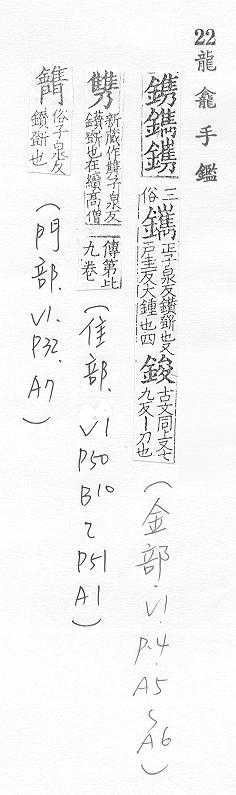 22 龍龕手鑑
三俗 鐫 正子泉反鑽斲也又戶圭反大鍾也四 鋑 古文同上又七九反一刀也
(金部.V1.P.4.A5~A6)
新藏作鐫子泉反鑽斲也在續高僧傳第廿九卷
(隹部.V1 P50 B10 ~ P51 A1)
俗子泉反鑽斲也
(門部.V1.P32.A7)